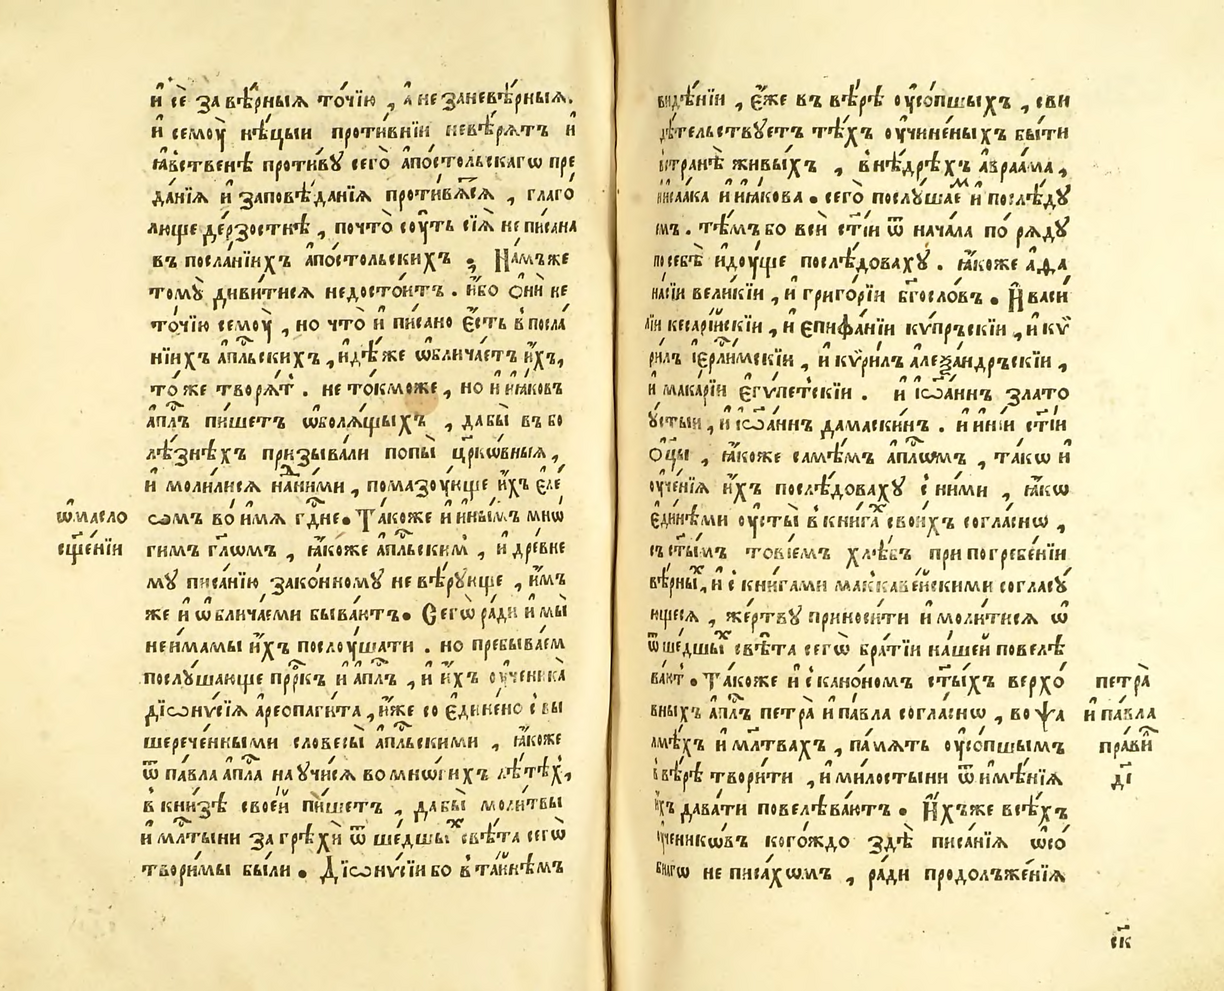 и҆ сѐ за вѣ́рныѧ то́чїю , а҆ не заневѣ́рныѧ.
и҆ семоу̀ нѣ́цыи проти́внїи невѣ́рѧтъ и҆
ꙗ҆́вственѣ проти́вꙋ сегѡ̀ а҆по́стольскагѡ пре
да́нїѧ и҆ заповѣ́данїѧ проти́вѧтсѧ , глаго́
люще де́рзостнѣ , почто̀ соу́ть сїѧ̀ не писана
въ посла́нїихъ а҆по́стольскихъ ; На́мъже
томꙋ̀ диви́тисѧ недосто́итъ . и҆́бо ѻ҆нѝ не
то́чїю семоу̀ , но что̀ и҆ пи́сано є҆́сть в посла́
нїихъ а҆пльскихъ , и҆дѣ́же ѡ҆блича́етъ и҆̀хъ,
то́же творѧ́тъ . не то́кможе , но и҆ и҆ꙗ҆́ковъ
а҆плъ пи́шетъ ѡ҆болѧ́щыхъ , дабы̀ въ бо
лѣ́знѣхъ призыва́ли попы̀ цр҃ко́вныѧ ,
и҆ моли́лисѧ нани́ми , помазоу́юще и҆̀хъ є҆ле́
ѡ҆ масло
сомъ во и҆́мѧ гд҃не. Та́коже и҆ и҆ны́мъ мнѡ́
сщ҃е́нїи
гимъ гл҃ѡмъ , ꙗ҆́коже а҆пльским , и҆ дре́вне
мꙋ̀ писа́нїю зако́нномꙋ не вѣ́рꙋюще , и҆́мъ
же и҆ ѡ҆блича́еми быва́ютъ. Сегѡ̀ ра́ди и҆ мы̀
неи́мамы и҆̀хъ послоу́шати . но пребыва́ем
послꙋ́шающе прр҃къ и҆ а҆плъ , и҆ и҆́хъ оу҆ченика
дїѻни́сїѧ а҆реопаги́та , и҆́же со є҆дине́но с вы
шерече́нными словесы̀ а҆пльскими , ꙗ҆́коже
ѿ па́вла а҆пла наꙋчи́сѧ во мно́гихъ лѣ́тѣх,
в кни́зѣ свое́й пи́шетъ , дабы̀ моли́твы
и҆ мл҃тыни за грѣхѝ ѿше́дшых свѣ́та сегѡ̀
твори́мы бы́ли . Дїѻни́сїи бо в та́йнѣмъ
видѣ́нїи , є҆́же въ вѣ́рѣ оу҆со́пшыхъ , сви
дѣ́тельствꙋетъ тѣ́хъ оу҆чине́ныхъ бы́ти
встра́нѣ живы́хъ , в нѣ́дрѣхъ а҆враа́ма ,
и҆ и҆саа́ка и҆ и҆ꙗ҆́кова . сего̀ послꙋ́шаем и҆ послѣ́дꙋ
емъ . тѣ́мъ бо всѝ ст҃і́и ѿ нача́ла по рѧ́дꙋ
по себѣ̀ и҆дꙋ́ще послѣ́довахꙋ . ꙗ҆́коже а҆ѳа
на́сїи вели́кїи , и҆ григо́рїи бг҃осло́въ . И҆ васи́
лїи кесарі́йскїи , и҆ є҆пифа́нїи кѵ́пръскїи , и҆ кѵ́
рилъ і҆ерл҃и́мскїи , и҆ кѵ́рилъ а҆леѯа́ндръскїи ,
и҆ мака́рїи є҆гѵ́петскїи . и҆ і҆ѡа́ннъ зла́то
ꙋ́стыи , и҆ і҆ѡа́ннъ дамаски́нъ . и҆ и҆ні́и ст҃і́и
ѻ҆цы̀ , ꙗ҆́коже самѣ́мъ а҆плѡмъ , та́кѡ и҆
оу҆че́нїѧ и҆́хъ послѣ́довахꙋ с ни́ми , ꙗ҆́кѡ
є҆ди́нѣми оу҆сты̀ в кни́гах свои́хъ согла́снѡ ,
съ ст҃ы́мъ тові́емъ хлѣ́бъ при погребе́нїи
вѣ́рных, и҆ с кни́гами маккаве́йскими согласꙋ́
ющесѧ , же́ртвꙋ приноси́ти и҆ моли́тисѧ ѡ҆
ѿше́дшых свѣ́та сегѡ̀ бра́тїи на́шей повелѣ
ва́ют . Та́коже и҆ с кано́номъ ст҃ы́хъ верхо́
петра̀
вныхъ а҆плъ петра̀ и҆ па́вла согла́снѡ , во ѱа
и҆ па́вла
лмѣ́хъ и҆ мл҃твахъ , па́мѧть оу҆со́пшымъ
прави
в вѣ́рѣ твори́ти , и҆ ми́лостыни ѿ и҆мѣ́нїѧ
ді
и҆́хъ дава́ти повелѣва́ютъ . И҆́хъже всѣ́хъ
оу҆ченикѡ́въ когѡ́ждо здѣ̀ писа́нїѧ ѡ҆со́
бнагѡ не писа́хѡмъ , ра́ди продолъже́нїѧ
ск